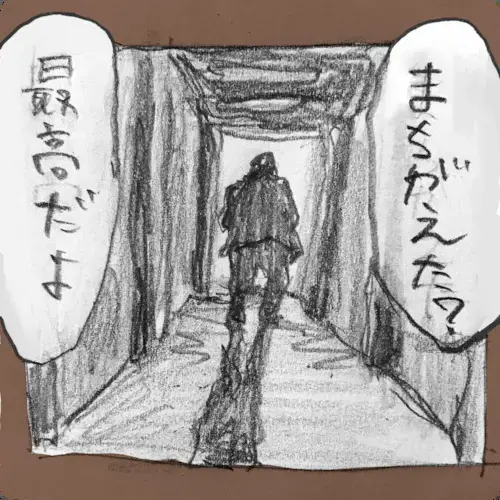 まちがえた?
最高だよ